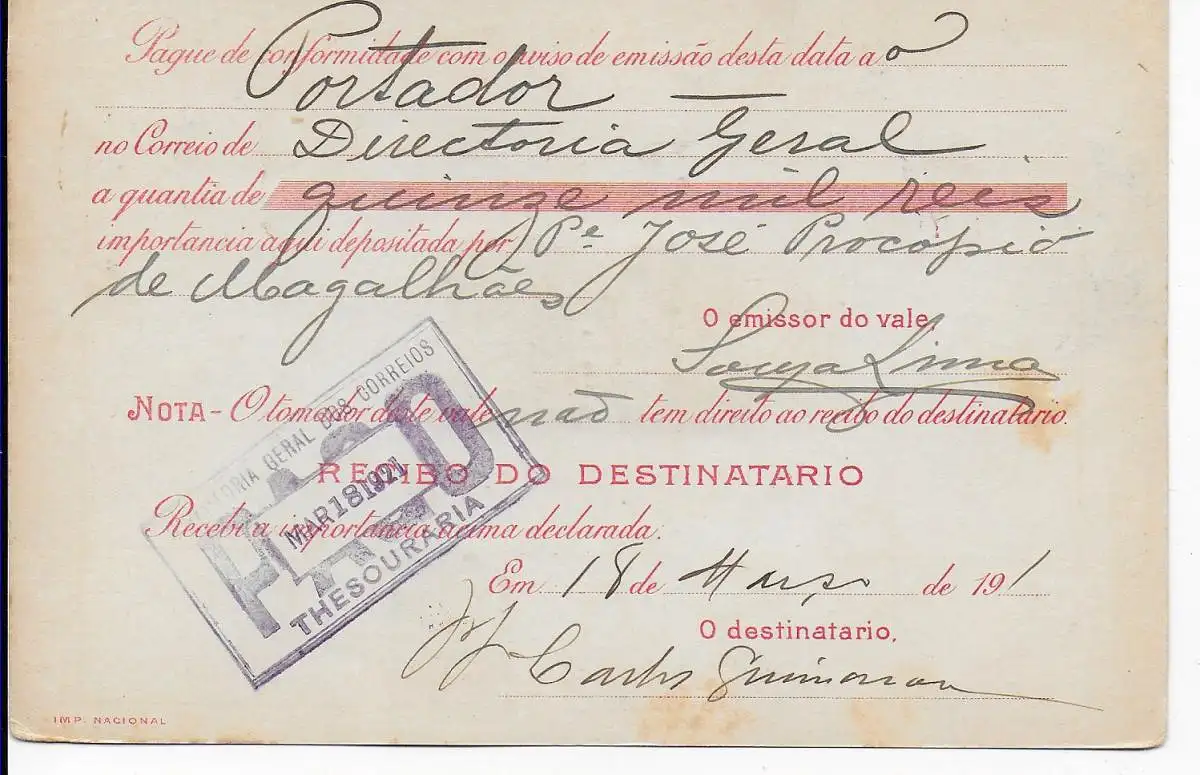 Pague de conformidade com o aviso de emissão desta data a o
Portador —
no Correio de Directoria Geral
a quantia de quinze mil reis
importancia aqui depositada por Pe José Procópio
de Magalhães
O emissor do vale,
Souza Lima
NOTA - O tomador deste vale não tem direito ao recibo do destinatario.
RECIBO DO DESTINATARIO
Recebi a importancia acima declarada.
Em 18 de Março de 191
O destinatario,
Carlos Guimarães
IMP. NACIONAL
DIRECTORIA GERAL DOS CORREIOS
PAGO
MAR 18 1921
THESOURARIA